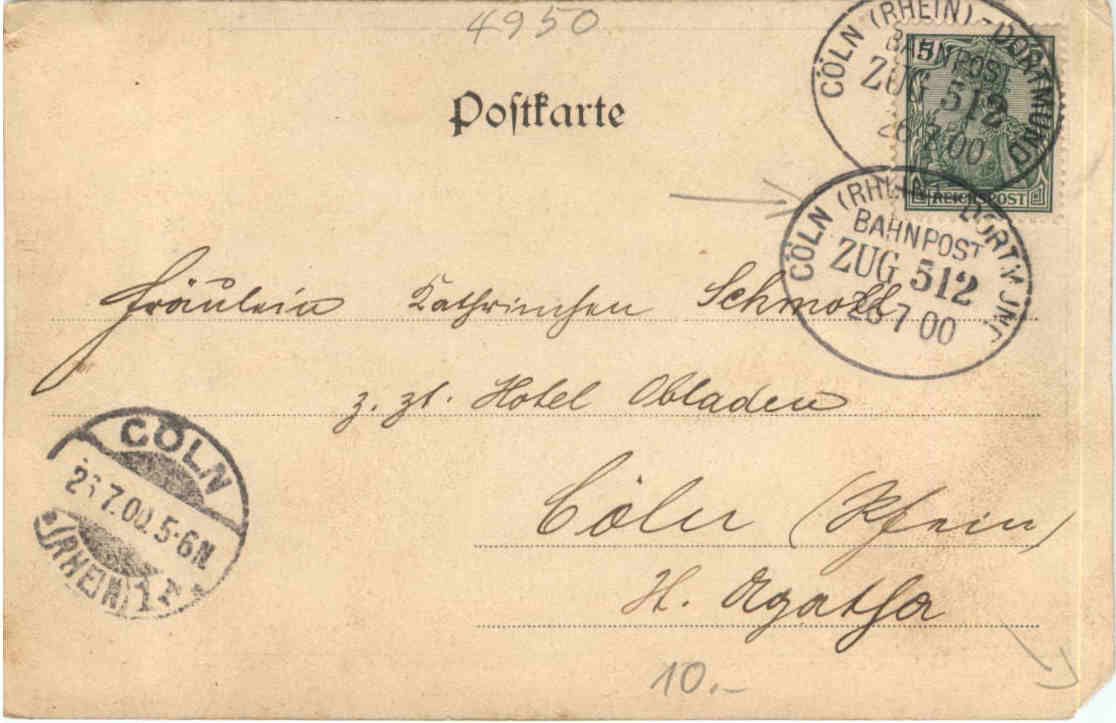 4950
Postkarte
5
REICHSPOST
CÖLN (RHEIN) - DORTMUND
BAHNPOST
ZUG 512
26 7 00
CÖLN (RHEIN) - DORTMUND
BAHNPOST
ZUG 512
26 7 00
Fräulein Kathrinchen Schmoll
z. zt. Hotel Obladen
Cöln (Rhein)
St. Agatha
CÖLN
26 7.00. 5-6N
(RHEIN) 1
10.-